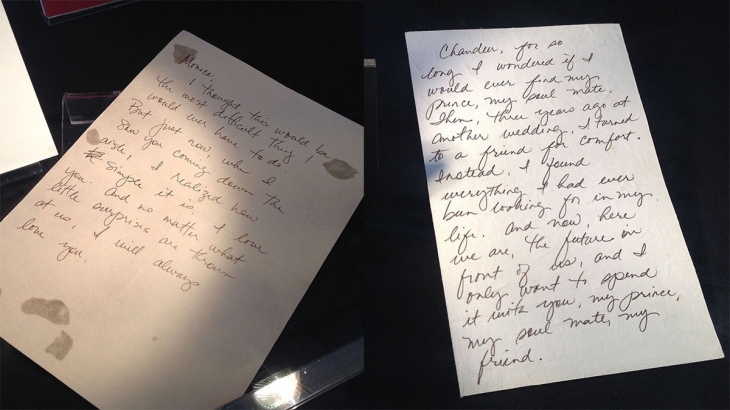 Monica,
I thought this would be
the most difficult thing I
would ever have to do.
But just now, when I
saw you coming down the
aisle, I realized how
simple it is. I love
you. And no matter what
little surprises are thrown
at us, I will always
love you.
Chandler, for so
long I wondered if I
would ever find my
prince, my soul mate.
Then, three years ago at
another wedding, I turned
to a friend for comfort.
Instead, I found
everything I had ever
been looking for in my
life. And now, here
we are, the future in
front of us, and I
only want to spend
it with you, my prince,
my soul mate, my
friend.